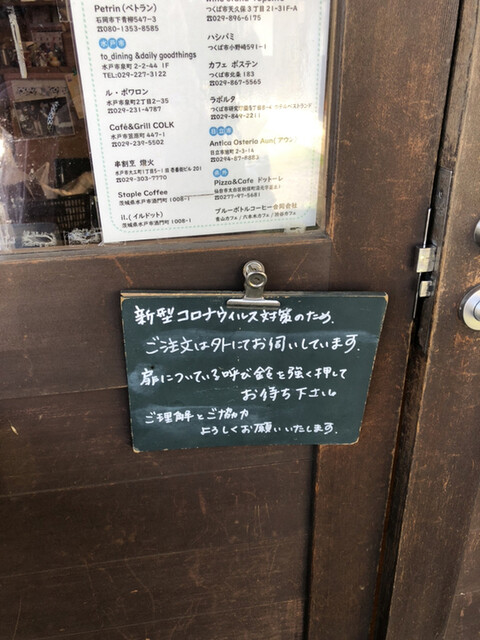 Petrin (ペトラン)
石岡市下青柳547-3
☎080-1353-8585
水戸市
to_dining &daily goodthings
水戸市泉町 2-2-44 1F
TEL:029-227-3122
ル・ポワロン
水戸市泉町2丁目2-35
☎029-231-4787
Café&Grill COLK
水戸市笠原町 447-1
☎029-239-5502
串割烹 燈火
☎029-303-7770
Staple Coffee
茨城県水戸市酒門町 1008-1
il.(イルドット)
茨城県水戸市酒門町 1008-1
つくば市天久保3丁目21-31F-A
☎029-896-6175
ハシバミ
つくば市小野崎591-1
カフェ ポステン
つくば市北条 183
☎029-867-5565
ラポルタ
☎029-849-2211
日立市
Antica Osteria Aun(アウン)
日立市旭町 2-3-14
☎0294-87-8083
Pizza&Cafe ドットーレ
☎0277-97-5681
ブルーボトルコーヒー合同会社
青山カフェ / 六本木カフェ / 渋谷カフェ
新型コロナウィルス対策のため、
ご注文は外にてお伺いしています。
扉についている呼び鈴を強く押して
お待ち下さい
ご理解とご協力
よろしくお願いいたします。